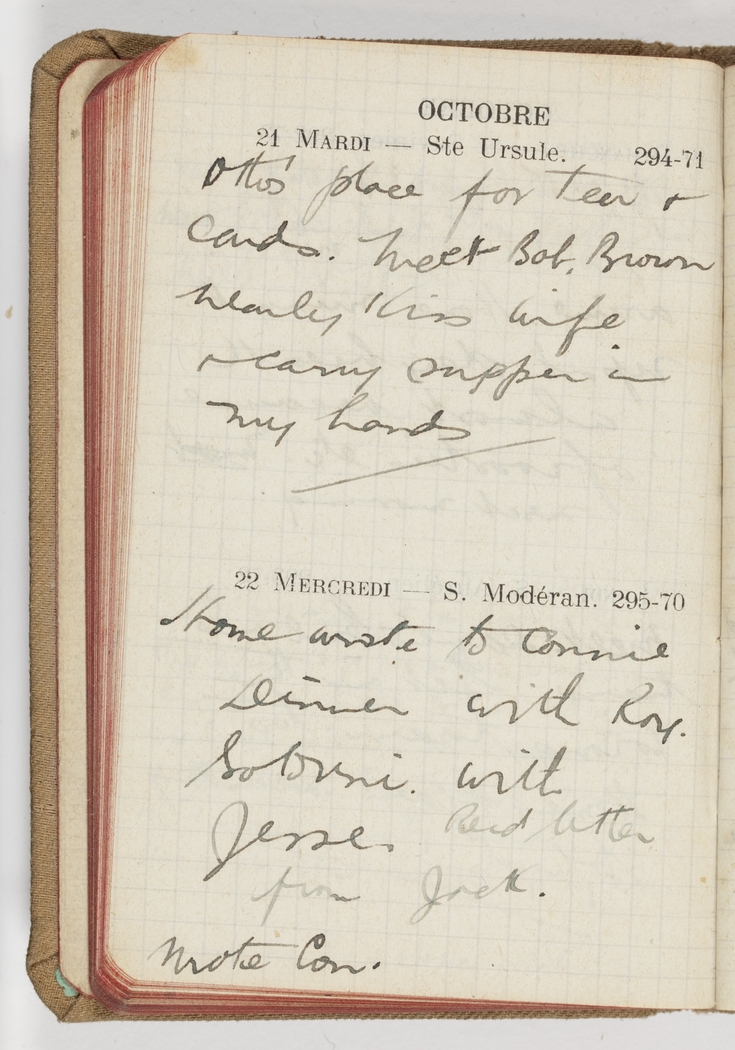 OCTOBRE
21 MARDI — Ste Ursule. 294-71
Otto's place for Tea +
Cards. Meet Bob. Brown
nearly Kiss wife
+ carry supper in
my hands
22 MERCREDI — S. Modéran. 295-70
Home wrote to Connie
Dinner with Roy.
with
Jesse. Recd letter
from Jack.
Wrote Con.